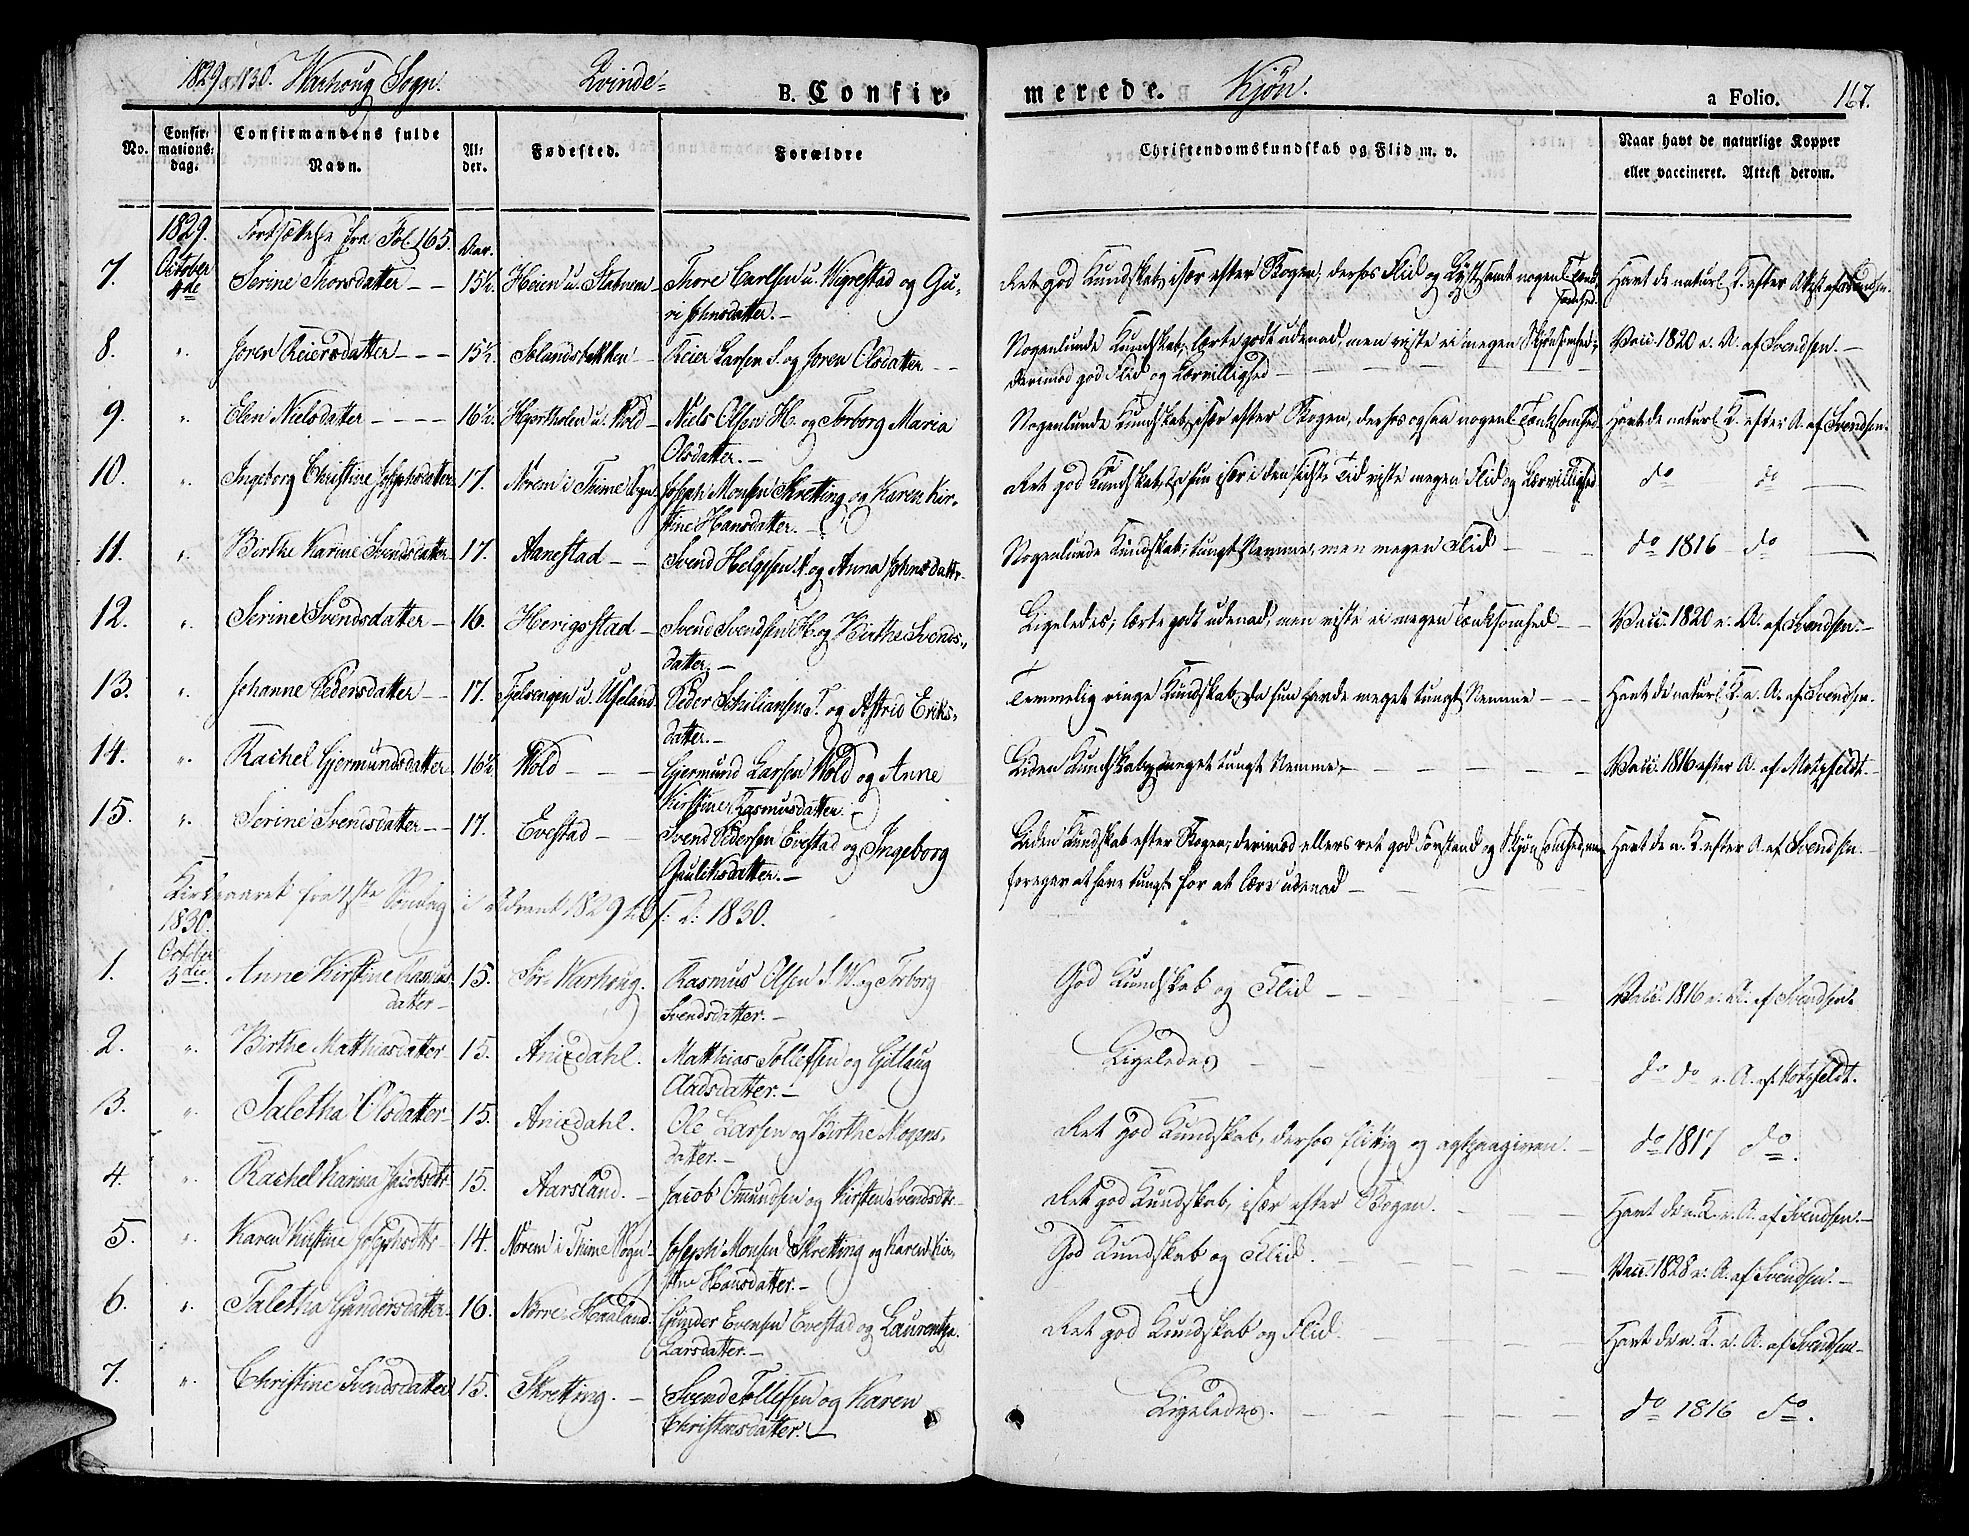 1829 & 1830. Warhoug Sogn. Qvinde= B. Confirmerede. Kjøn. a Folio. 167.
No. Confirmationsdag. Confirmandens fulde Navn. Alder. Fødested. Forældre Christendomskundskab og Flid m. v. Naar havt de naturlige Kopper eller vaccineret. Attest derom.
1829. Fortsættelse fra Fol. 165. Aar.
7. October 4de Serine Thorsdatter 15½ Heien u. Stavnem Thore Carlsen u. Wigrestad og Gu- Ret god Kundskab, især efter Bogen, derhos Flid og Lyst samt nogen Tænk- Havt de naturl. K. efter Attest af Svendsen.
ri Johnsdatter.— somhed.
8. ". Joren Reiersdatter 15½ Solandsbakken Reier Larsen S. og Joren Olsdatter Nogenlunde Kundskab, lærte godt udenad, men viste ei megen Skjønsomhed; Vacc. 1820 e. A. af Svendsen.
derimod god Flid og Lærvillighed
9. ". Elen Nielsdatter 16½ Hjortholen u. Wold Niels Olsen H. og Torborg Maria Nogenlunde Kundskab, især efter Bogen, derhos ogsaa nogenl. Tænksomhed Havt de naturl. K. efter A. af Svendsen.
Olsdatter.—
10. ". Ingeborg Christine Josephsdatter 17. Norem i Thime Sogn Joseph Monsen Skretting og Karen Kir- Ret god Kundskab, da hun især i den sidste Tid viste megen Flid og Lærvillighed do do
stine Hansdatter.—
11. ". Birthe Karine Svendsdatter 17. Aanestad Svend Helgesen A. og Anna Johnsdatter Nogenlunde Kundskab; tungt Nemme, men megen Flid do 1816 do
12. ". Serine Svendsdatter 16. Herigsstad Svend Svendsen H. og Birthe Svends- Ligeledes; lærte godt udenad, men viste ei megen Tænksomhed Vacc. 1820 e. A. af Svendsen.
datter.—
13. ". Johanne Pedersdatter 17. Tjelvengen u. Ueland Peder S. T. og Astrid Eriks- Temmelig ringe Kundskab, da hun havde meget tungt Nemme Havt de naturl. K. e. A. af Svendsen.
datter.—
14. ". Rachel Gjermundsdatter 16½ Wold Gjermund Larsen Wold og Anne Liden Kundskab; meget tungt Nemme, Vacc. 1816 efter A. af Motzfeldt.
Kirstine Rasmusdatter
15. ". Serine Svendsdatter 17. Evestad Svend Pedersen Evestad og Ingeborg Liden Kundskab efter Bogen, derimod ellers ret god Forstand og Skjønsomhed, men Havt de n. K. efter A. af Svendsen.
Gauteksdatter.— foregav at have tungt for at lære udenad
Kirkeaaret fra 1ste Søndag i Advent 1829 til s. T. 1830.
1830.
1. October 3die. Anne Kirstine Rasmus- 15. Sör-Warhoug. Rasmus Olsen S. W. og Torborg God Kundskab og Flid Vacc. 1816 e. A. af Svendsen.
datter Svendsdatter.—
2. ". Birthe Matthiasdatter 15. Aniedahl. Matthias Tollefsen og Gitlaug Ligeledes do do e. A. af Motzfeldt.
Aadsdatter.—
3. ". Taletha Olsdatter 15. Aniedahl. Ole Larsen og Birthe Mogens- Ret god Kundskab, derhos flittig og agtpaagiven. do 1817 do.
datter.—
4. ". Rachel Karina Jacobsdtr 15. Aarsland. Jacob Omundsen og Kirsten Svendsdtr. Ret god Kundskab, især efter Bogen. Havt de n. K. e. A. af Svendsen.
5. ". Karen Kirstine Josephsdtr 14. Norem i Thime Sogn Joseph Monsen Skretting og Karen Kir- God Kundskab og Flid. Vacc. 1828 e. A. af Svendsen.
stine Hansdatter.—
6. ". Taletha Gundersdatter 16. Nörre Haaland. Gunder Evensen Evestad og Laurentze Ret god Kundskab og Flid. Havt de n. K. e. A. af Svendsen
Larsdatter.—
7. ". Christine Svendsdatter 15. Skretting. Svend Tollefsen og Karen Ligeledes. do 1816 do.
Christensdatter.